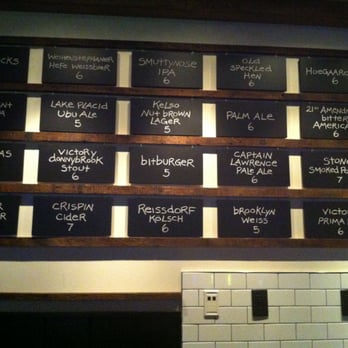 CKS
Weihenstephaner
Hefe Weissbier
6
Smuttynose
IPA
6
Old
Speckled
Hen
6
Hoegaard
6
NT
PA
Lake Placid
Ubu Ale
5
Kelso
Nut Brown
Lager
5
Palm Ale
6
21st Amend
Bitter
America
6
AS
Victory
Donnybrook
Stout
6
Bitburger
5
Captain
Lawrence
Pale Ale
6
Stone
Smoked Po
7
ER
Crispin
Cider
7
Reissdorf
Kolsch
6
Brooklyn
Weiss
5
Victo
Prima
6